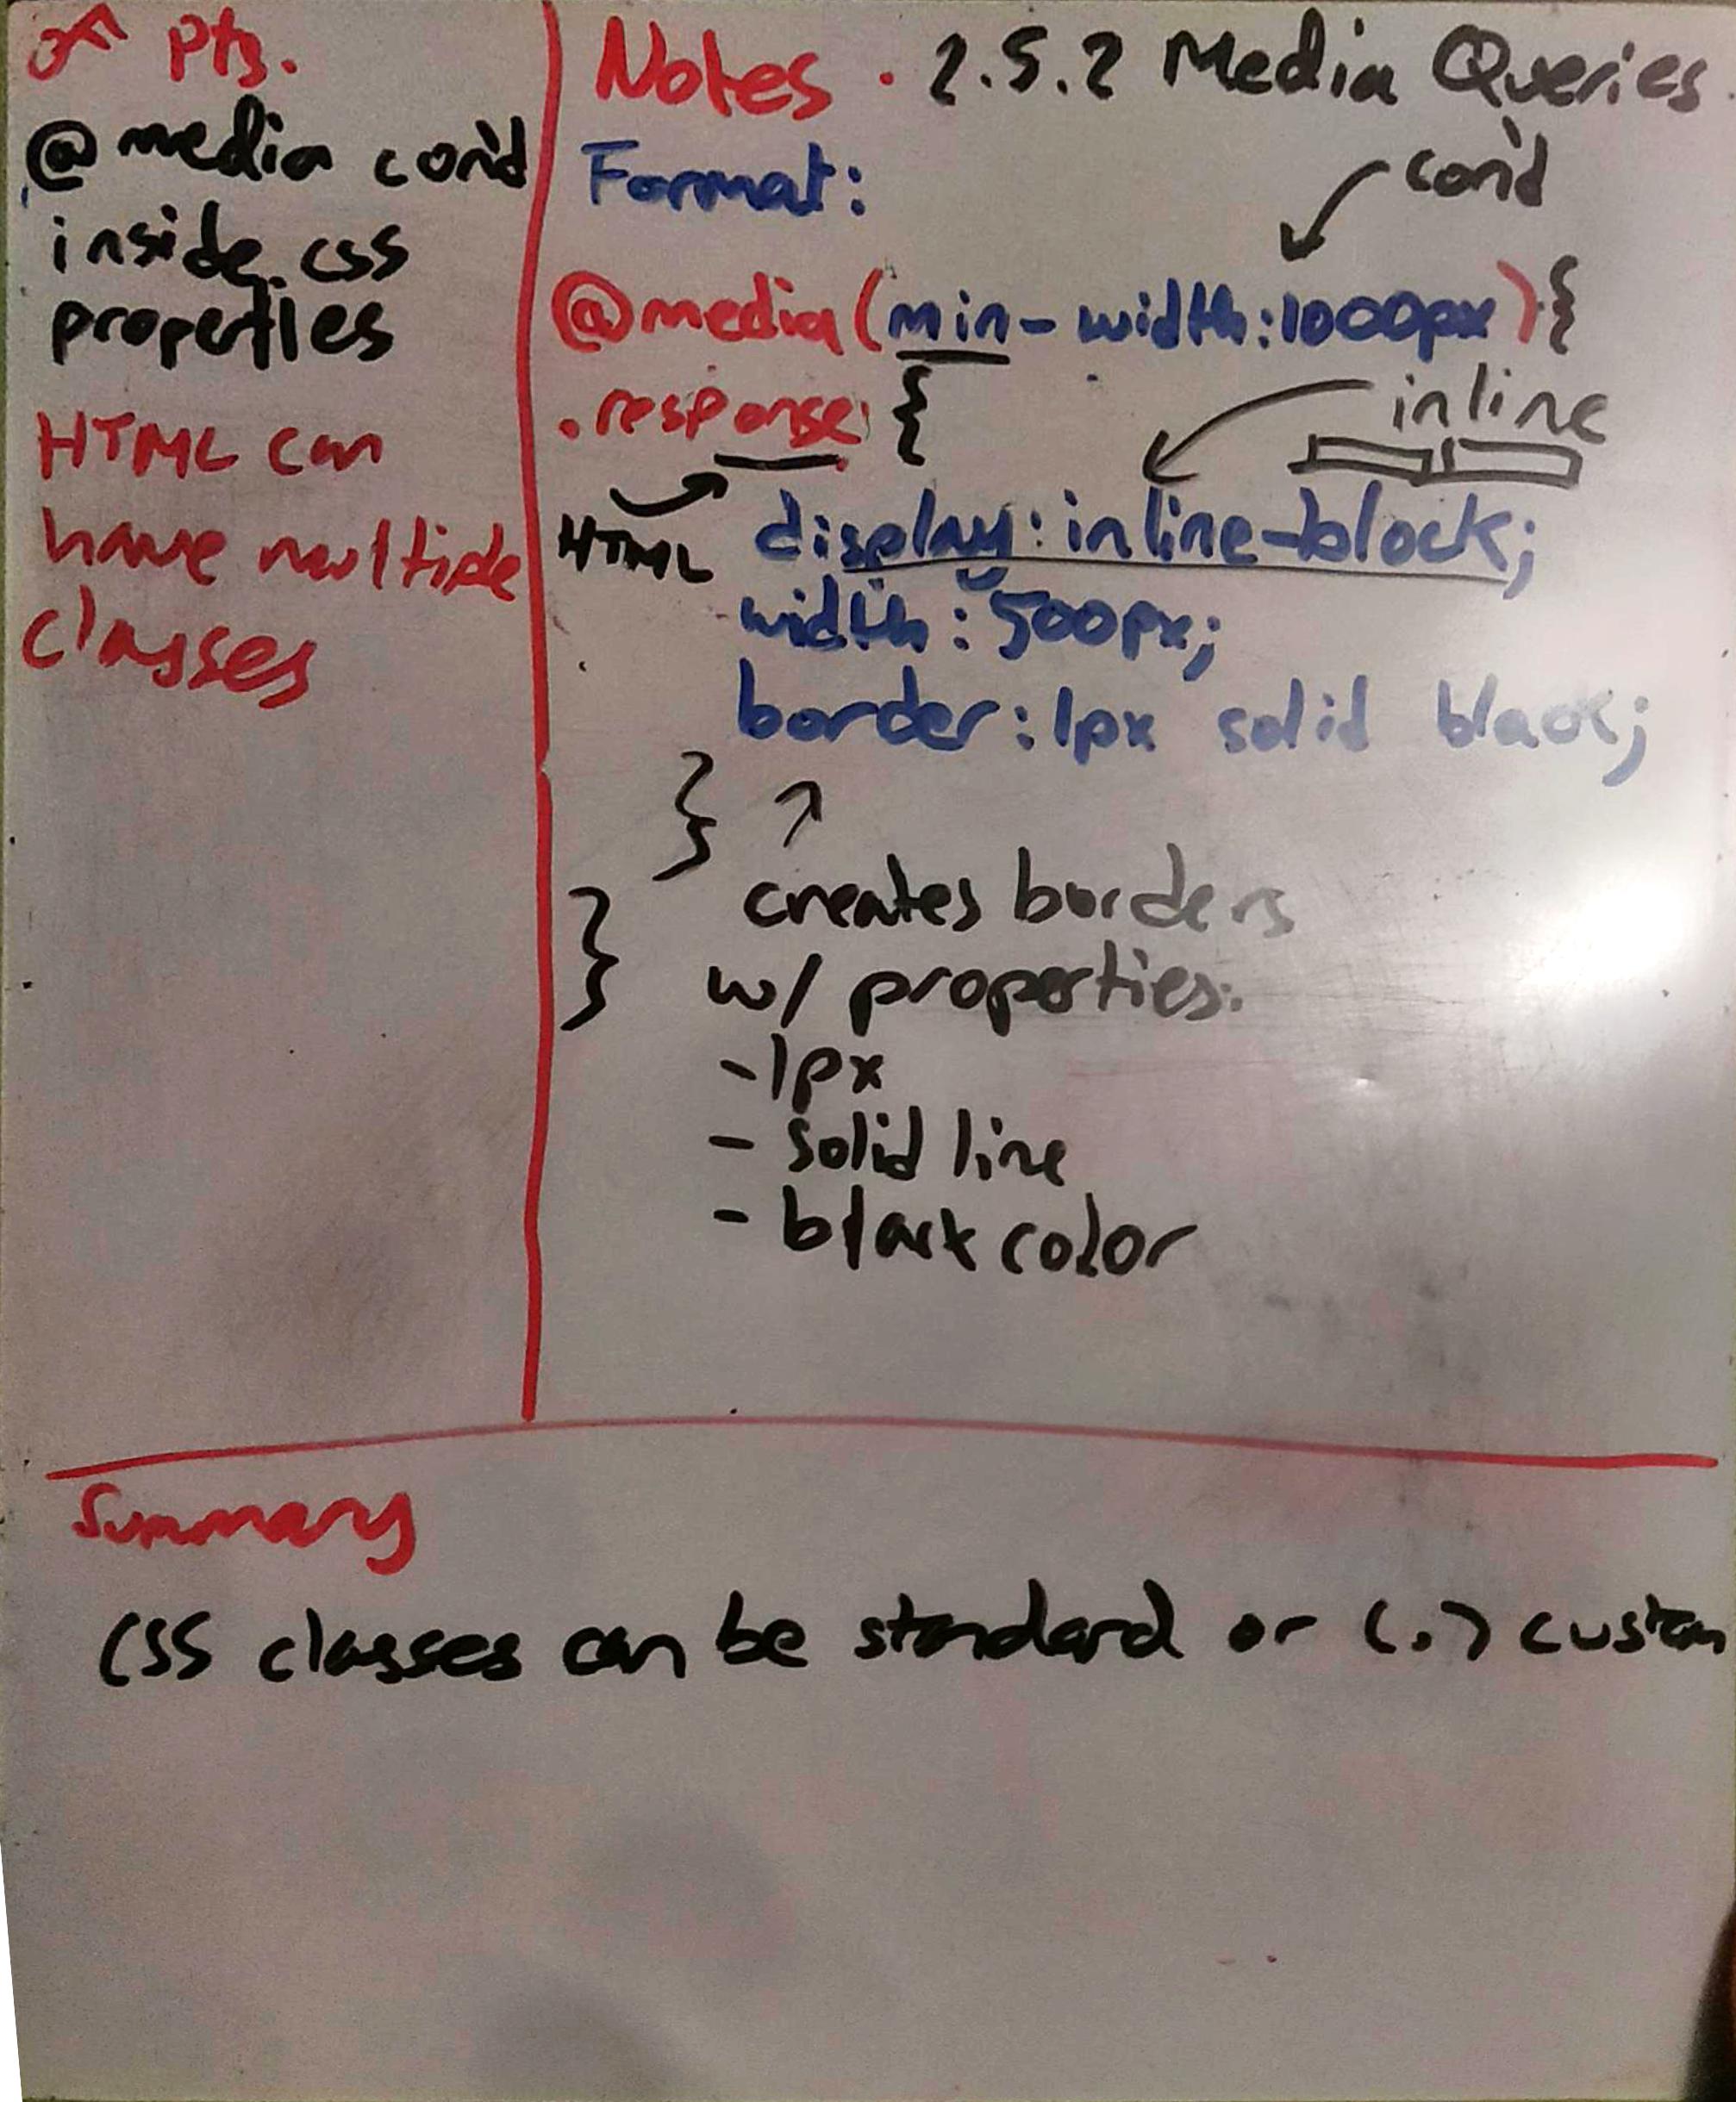 Pts.
@media con'd
inside css
properties
HTML can
have multiple
classes
Notes . 2.5.2 Media Queries
Format:
con'd
@media(min-width:1000px){
.response {
inline
HTML
display: inline-block;
width: 500px;
border: 1px solid black;
}
}
creates borders
w/ properties:
-1px
- solid line
- black color
Summary
CSS classes can be standard or (.) custom